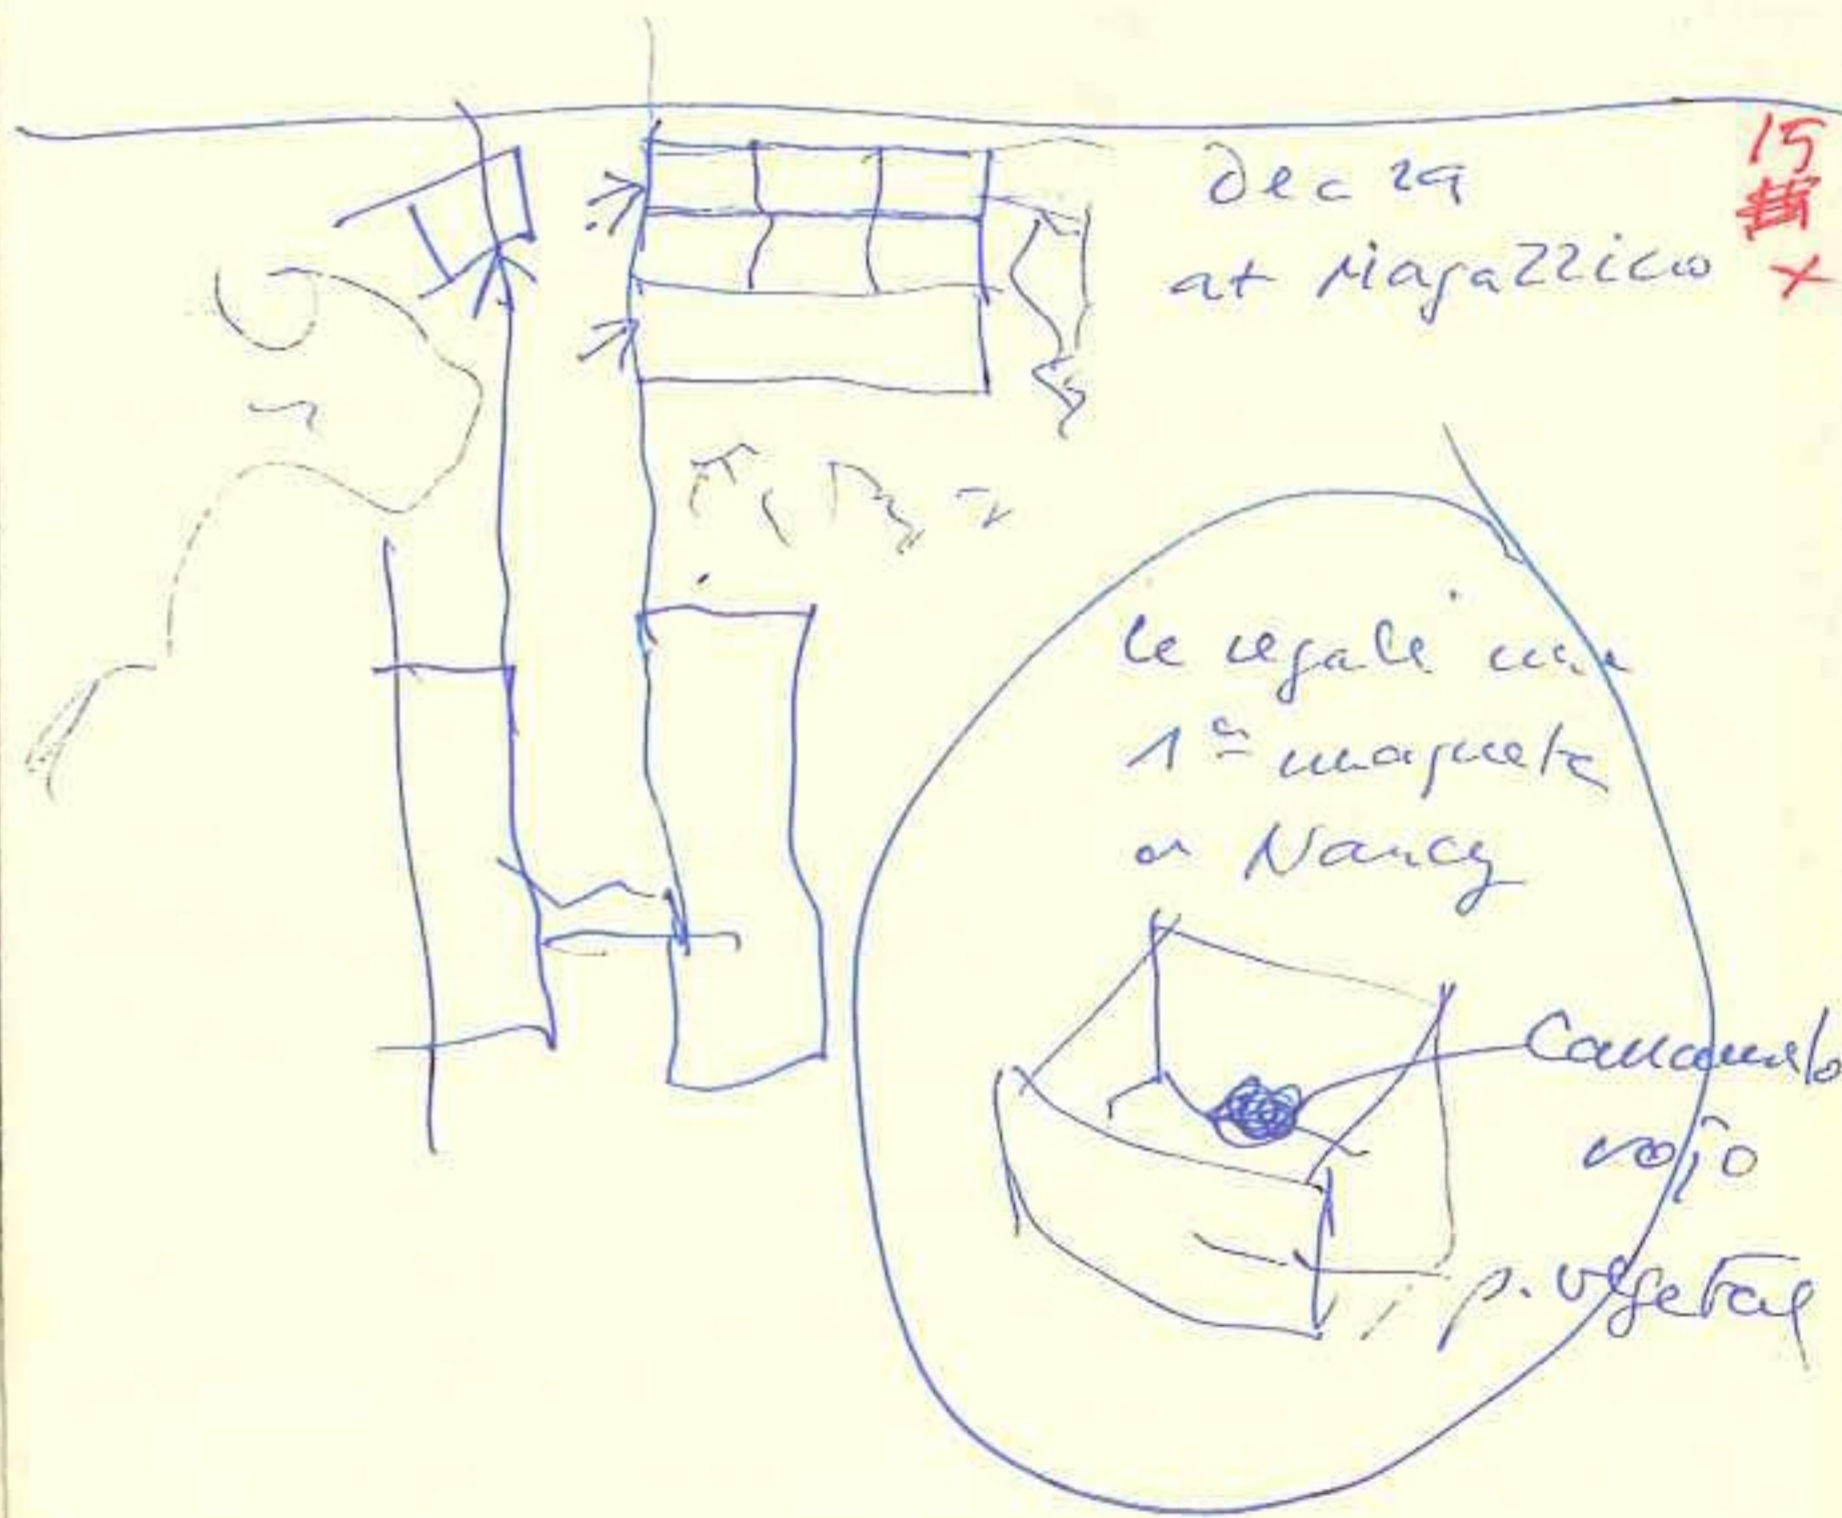 Dec 29
at Magazzino
15
x
le regalé una
1ª maqueta
a Nancy
Caramelo
rojo
p. vegetal